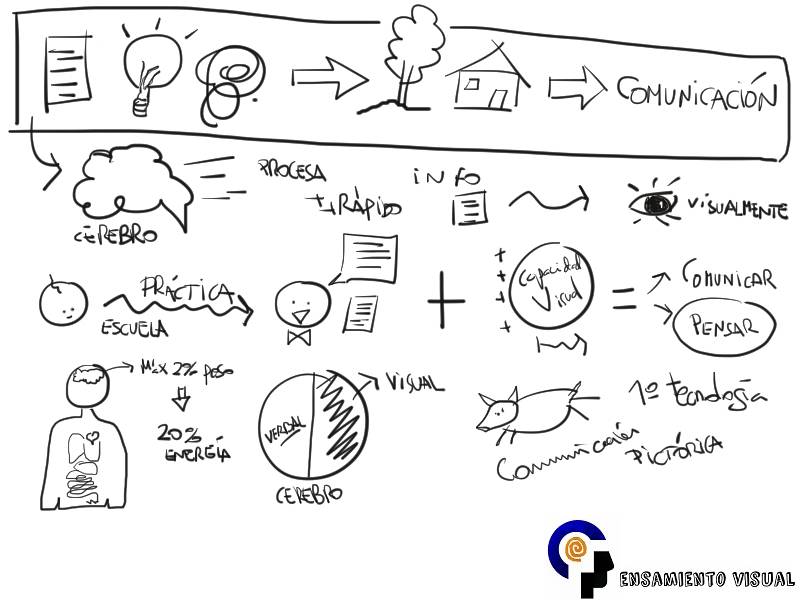 COMUNICACIÓN
CEREBRO
PROCESA
++RÁPIDO
INFO
VISUALMENTE
PRÁCTICA
ESCUELA
+
capacidad
Visual
=
COMUNICAR
PENSAR
MÁX 2% PESO
20%
ENERGÍA
VERBAL
VISUAL
CEREBRO
1º Tecnología
Comunicación
PICTÓRICA
PENSAMIENTO VISUAL